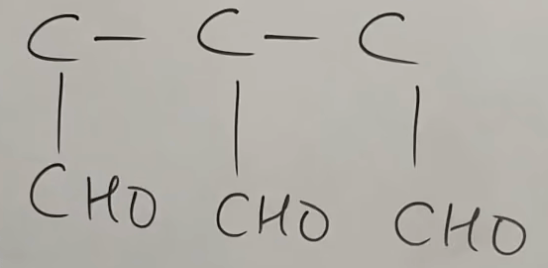 C - C - C
CHO CHO CHO